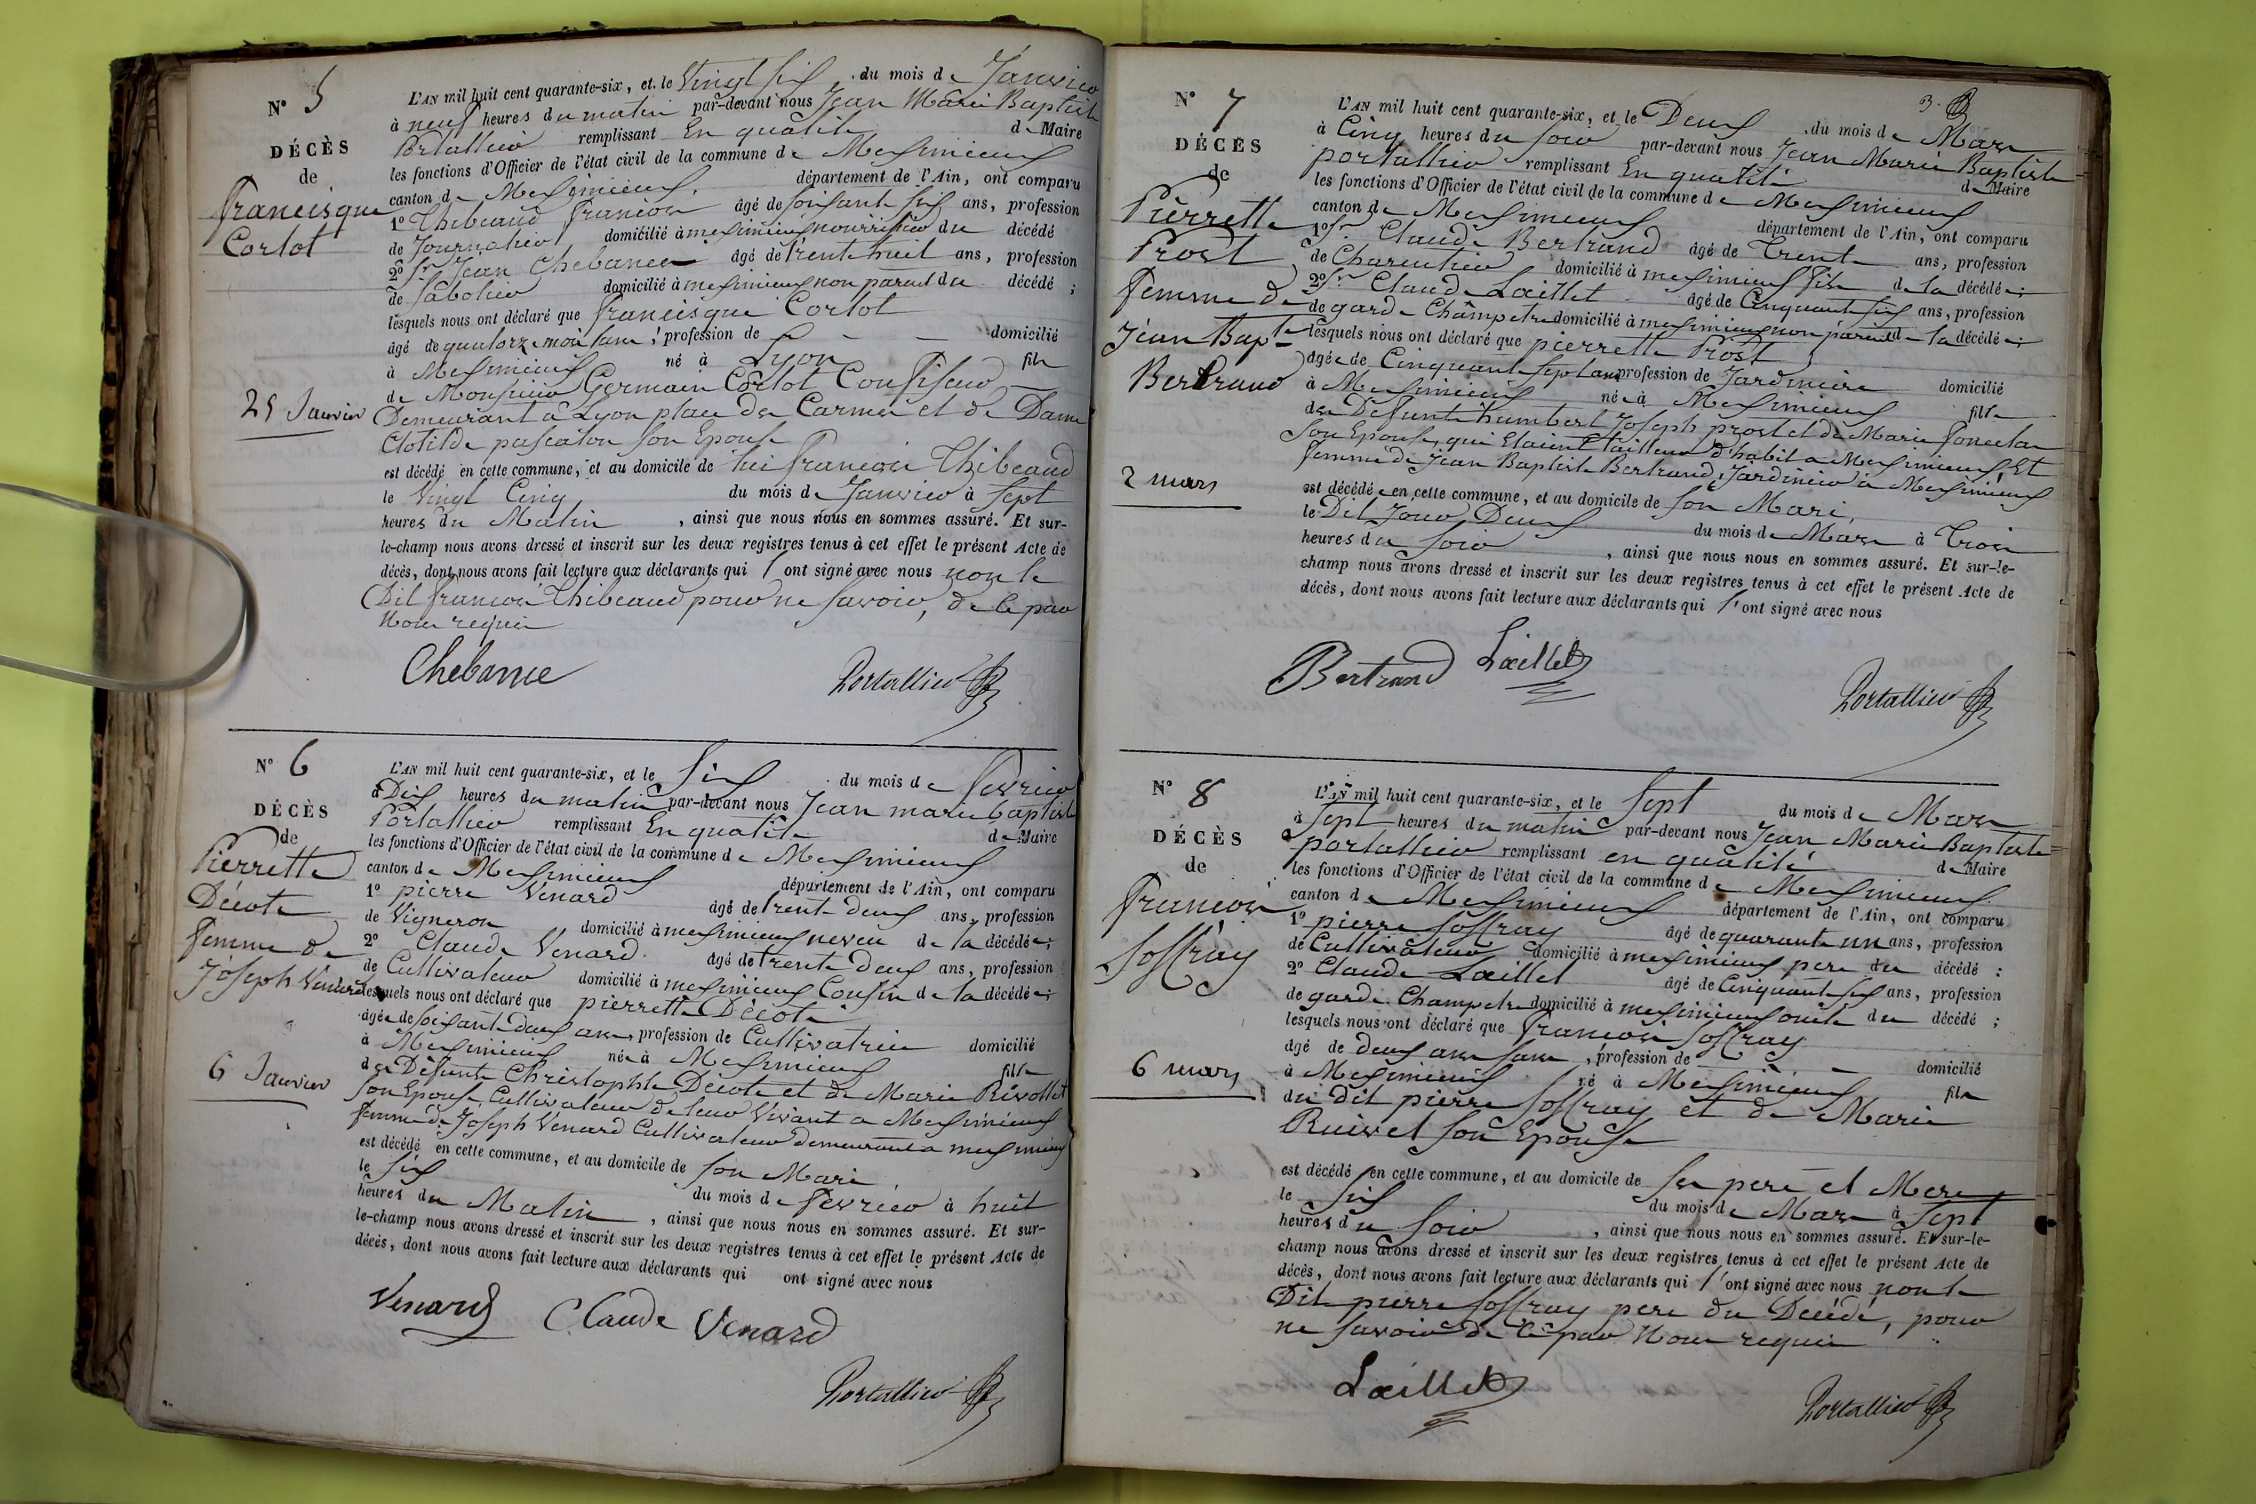 N° 5
DÉCÈS
de
francisque
Corlot
25 Janvier
L'AN mil huit cent quarante-six, et le Vingt Six du mois de Janvier
à neuf heures du matin par-devant nous Jean Marie Baptiste
Portallier remplissant En qualité de Maire
les fonctions d'Officier de l'état civil de la commune de Meximieux
canton de Meximieux département de l'Ain, ont comparu
1° Thibeaud françois âgé de soixante six ans, profession
de Journalier domicilié à meximieux nourricier du décédé
2° Sr Jean Chebance âgé de trente huit ans, profession
de Sabotier domicilié à meximieux non parent du décédé ;
lesquels nous ont déclaré que francisque Corlot
âgé de quatorze mois , profession de domicilié
à Meximieux né à Lyon fils
de Monsieur Germain Corlot Confiseur
Demeurant à Lyon place des Carmes et de Dame
Clotilde pascalon son Epouse
est décédé en cette commune, et au domicile de lui françois Thibeaud
le Vingt Cinq du mois de Janvier à Sept
heures du Matin , ainsi que nous nous en sommes assuré. Et sur-
le-champ nous avons dressé et inscrit sur les deux registres tenus à cet effet le présent Acte de
décès, dont nous avons fait lecture aux déclarants qui l'ont signé avec nous non le
Dit françois Thibeaud pour ne savoir, de ce par
Nous requis
Chebance Portallier
N° 6
DÉCÈS
de
Pierrette
Décote
femme de
Joseph Venard
6 Janvier
L'AN mil huit cent quarante-six, et le Six du mois de fevrier
à Dix heures du matin par-devant nous Jean marie baptiste
Portallier remplissant En qualité de Maire
les fonctions d'Officier de l'état civil de la commune de Meximieux
canton de Meximieux département de l'Ain, ont comparu
1° pierre Venard âgé de trente deux ans, profession
de Vigneron domicilié à meximieux neveu de la décédée ;
2° Claude Venard âgé de trente Deux ans, profession
de Cultivateur domicilié à meximieux Cousin de la décédée ;
lesquels nous ont déclaré que pierrette Décote
âgée de soixante deux ans, profession de Cultivatrice domicilié
à Meximieux née à Meximieux fille
des Défunts Christophle Décote et de Marie Rivollet
son Epouse Cultivateur de leur Vivant a Meximieux
femme de Joseph Venard Cultivateur demeurant a meximieux
est décédé en cette commune, et au domicile de son Mari
le six du mois de fevrier à huit
heures du Matin , ainsi que nous nous en sommes assuré. Et sur-
le-champ nous avons dressé et inscrit sur les deux registres tenus à cet effet le présent Acte de
décès, dont nous avons fait lecture aux déclarants qui ont signé avec nous
Venard Claude Venard
Portallier
3.
N° 7
DÉCÈS
de
Pierrette
Prost
femme de
Jean Bapte
Bertrand
2 mars
L'AN mil huit cent quarante-six, et le Deux du mois de Mars
à Cinq heures du soir par-devant nous Jean Marie Baptiste
portallier remplissant En qualité de Maire
les fonctions d'Officier de l'état civil de la commune de Meximieux
canton de Meximieux département de l'Ain, ont comparu
1° Sr Claude Bertrand âgé de Trente ans, profession
de Charcutier domicilié à meximieux fils de la décédée ;
2° Sr Claude Laillet âgé de Cinquante six ans, profession
de garde Champetre domicilié à meximieux non parent de la décédée ;
lesquels nous ont déclaré que pierrette Prost
âgée de Cinquante sept ans profession de Jardiniere domicilié
à Meximieux née à Meximieux fille
des Défunts humbert Joseph prost et de Marie
son Epouse, qui Etaient tailleur d'habit a Meximieux, Et
femme de Jean Baptiste Bertrand, Jardinier à Meximieux
est décédée en cette commune, et au domicile de son Mari
le Dit Jour Deux du mois de Mars à Trois
heures du soir , ainsi que nous nous en sommes assuré. Et sur-le-
champ nous avons dressé et inscrit sur les deux registres tenus à cet effet le présent Acte de
décès, dont nous avons fait lecture aux déclarants qui l'ont signé avec nous
Bertrand Laillet
Portallier
N° 8
DÉCÈS
de
françois
Soffray
6 mars
L'AN mil huit cent quarante-six, et le Sept du mois de Mars
à Sept heures du matin par-devant nous Jean Marie Baptiste
portallier remplissant en qualité de Maire
les fonctions d'Officier de l'état civil de la commune de Meximieux
canton de Meximieux département de l'Ain, ont comparu
1° pierre Soffray âgé de quarante un ans, profession
de Cultivateur domicilié à meximieux pere du décédé :
2° Claude Laillet âgé de Cinquante six ans, profession
de garde Champetre domicilié à meximieux oncle du décédé ;
lesquels nous ont déclaré que françois Soffray
âgé de deux ans , profession de domicilié
à Meximieux né à Meximieux fils
du dit pierre Soffray et de Marie
Ruivet son Epouse
est décédé en cette commune, et au domicile de ses pere et Mere
le Six du mois de Mars à Sept
heures du soir , ainsi que nous nous en sommes assuré. Et sur-le-
champ nous avons dressé et inscrit sur les deux registres tenus à cet effet le présent Acte de
décès, dont nous avons fait lecture aux déclarants qui l'ont signé avec nous non le
Dit pierre Soffray pere du Décédé, pour
ne savoir de ce par Nous requis
Laillet
Portallier